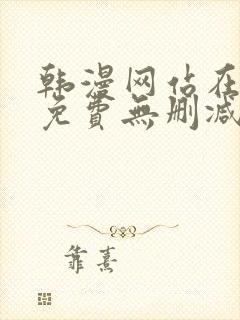 韩漫网站在
免費無删减
靠熹